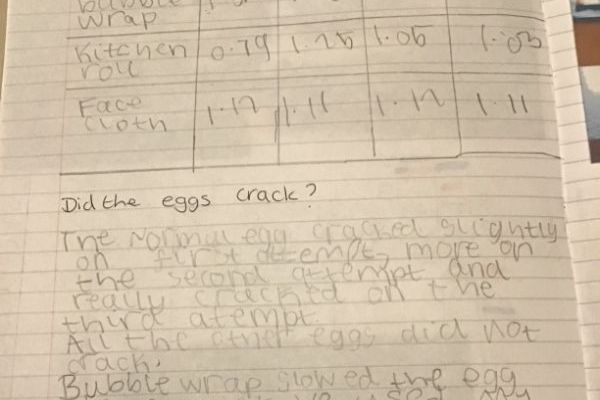 bubble
wrap
Kitchen 0.79 1.25 1.05 1.03
roll
Face 1.12 1.11 1.12 1.11
cloth
Did the eggs crack?
The Normal egg cracked slightly
on first attempt, more on
the second attempt and
really cracked on the
third atempt.
All the other eggs did not
crack.
Bubble wrap slowed the egg